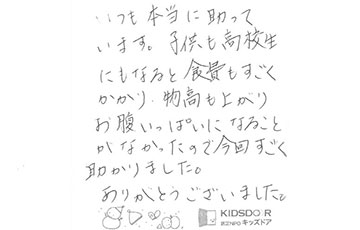 いつも本当に助かって
います。子供も高校生
にもなると食費もすごく
かかり、物高も上がり
お腹いっぱいになること
がなかったので今回すごく
助かりました。
ありがとうございました。
KIDSDOOR
認定NPO キッズドア